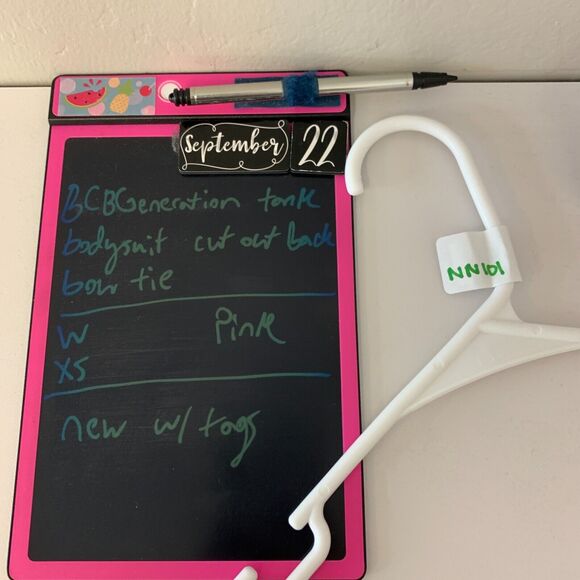 September 22
BCBGeneration tank
bodysuit cut out back
bow tie
W Pink
XS
new w/ tags
NN101